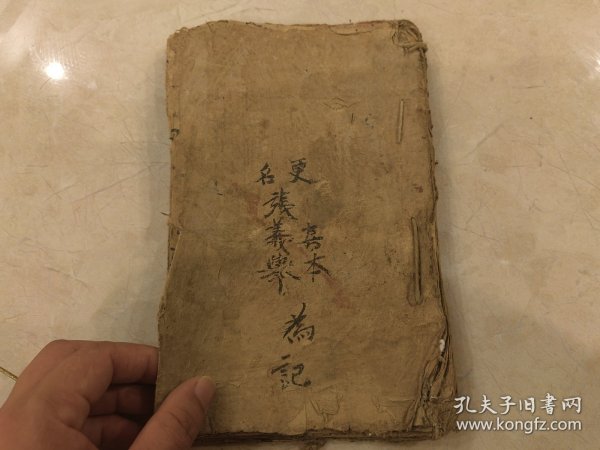 更名
張義舉
喜本
為記
孔夫子旧書网
www.kongfz.com